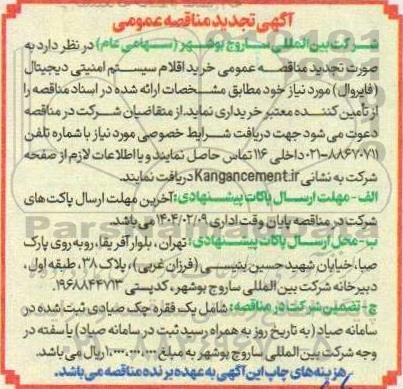 آگهی تجدید مناقصه عمومی
شرکت بین المللی ساروج بوشهر (سهامی عام) در نظر دارد به
صورت تجدید مناقصه عمومی خرید اقلام سیستم امنیتی دیجیتال
(فایروال) مورد نیاز خود مطابق مشخصات ارائه شده در اسناد مناقصه را
از تأمین کننده معتبر خریداری نماید. از متقاضیان شرکت در مناقصه
دعوت می شود جهت دریافت شرایط خصوصی مورد نیاز با شماره تلفن
۰۲۱-۸۸۶۷۰۷۱۱ داخلی ۱۱۶ تماس حاصل نمایند و یا اطلاعات لازم از صفحه
شرکت به نشانی Kangancement.ir دریافت نمایند.
الف- مهلت ارسال پاکات پیشنهادی: آخرین مهلت ارسال پاکت های
شرکت در مناقصه پایان وقت اداری ۱۴۰۴/۰۲/۰۹ می باشد.
ب- محل ارسال پاکات پیشنهادی: تهران، بلوار آفریقا، روبه روی پارک
صبا، خیابان شهید حسین بنیسی (فرزان غربی)، پلاک ۳۸، طبقه اول،
دبیرخانه شرکت بین المللی ساروج بوشهر، کدپستی ۱۹۶۸۸۴۴۷۱۳.
ج- تضمین شرکت در مناقصه: شامل یک فقره چک صیادی ثبت شده در
سامانه صیاد (به تاریخ روز به همراه رسید ثبت در سامانه صیاد) یا سفته در
وجه شرکت بین المللی ساروج بوشهر به مبلغ ۱۰,۰۰۰,۰۰۰,۰۰۰ ریال می باشد.
هزینه های چاپ این آگهی به عهده برنده مناقصه می باشد.